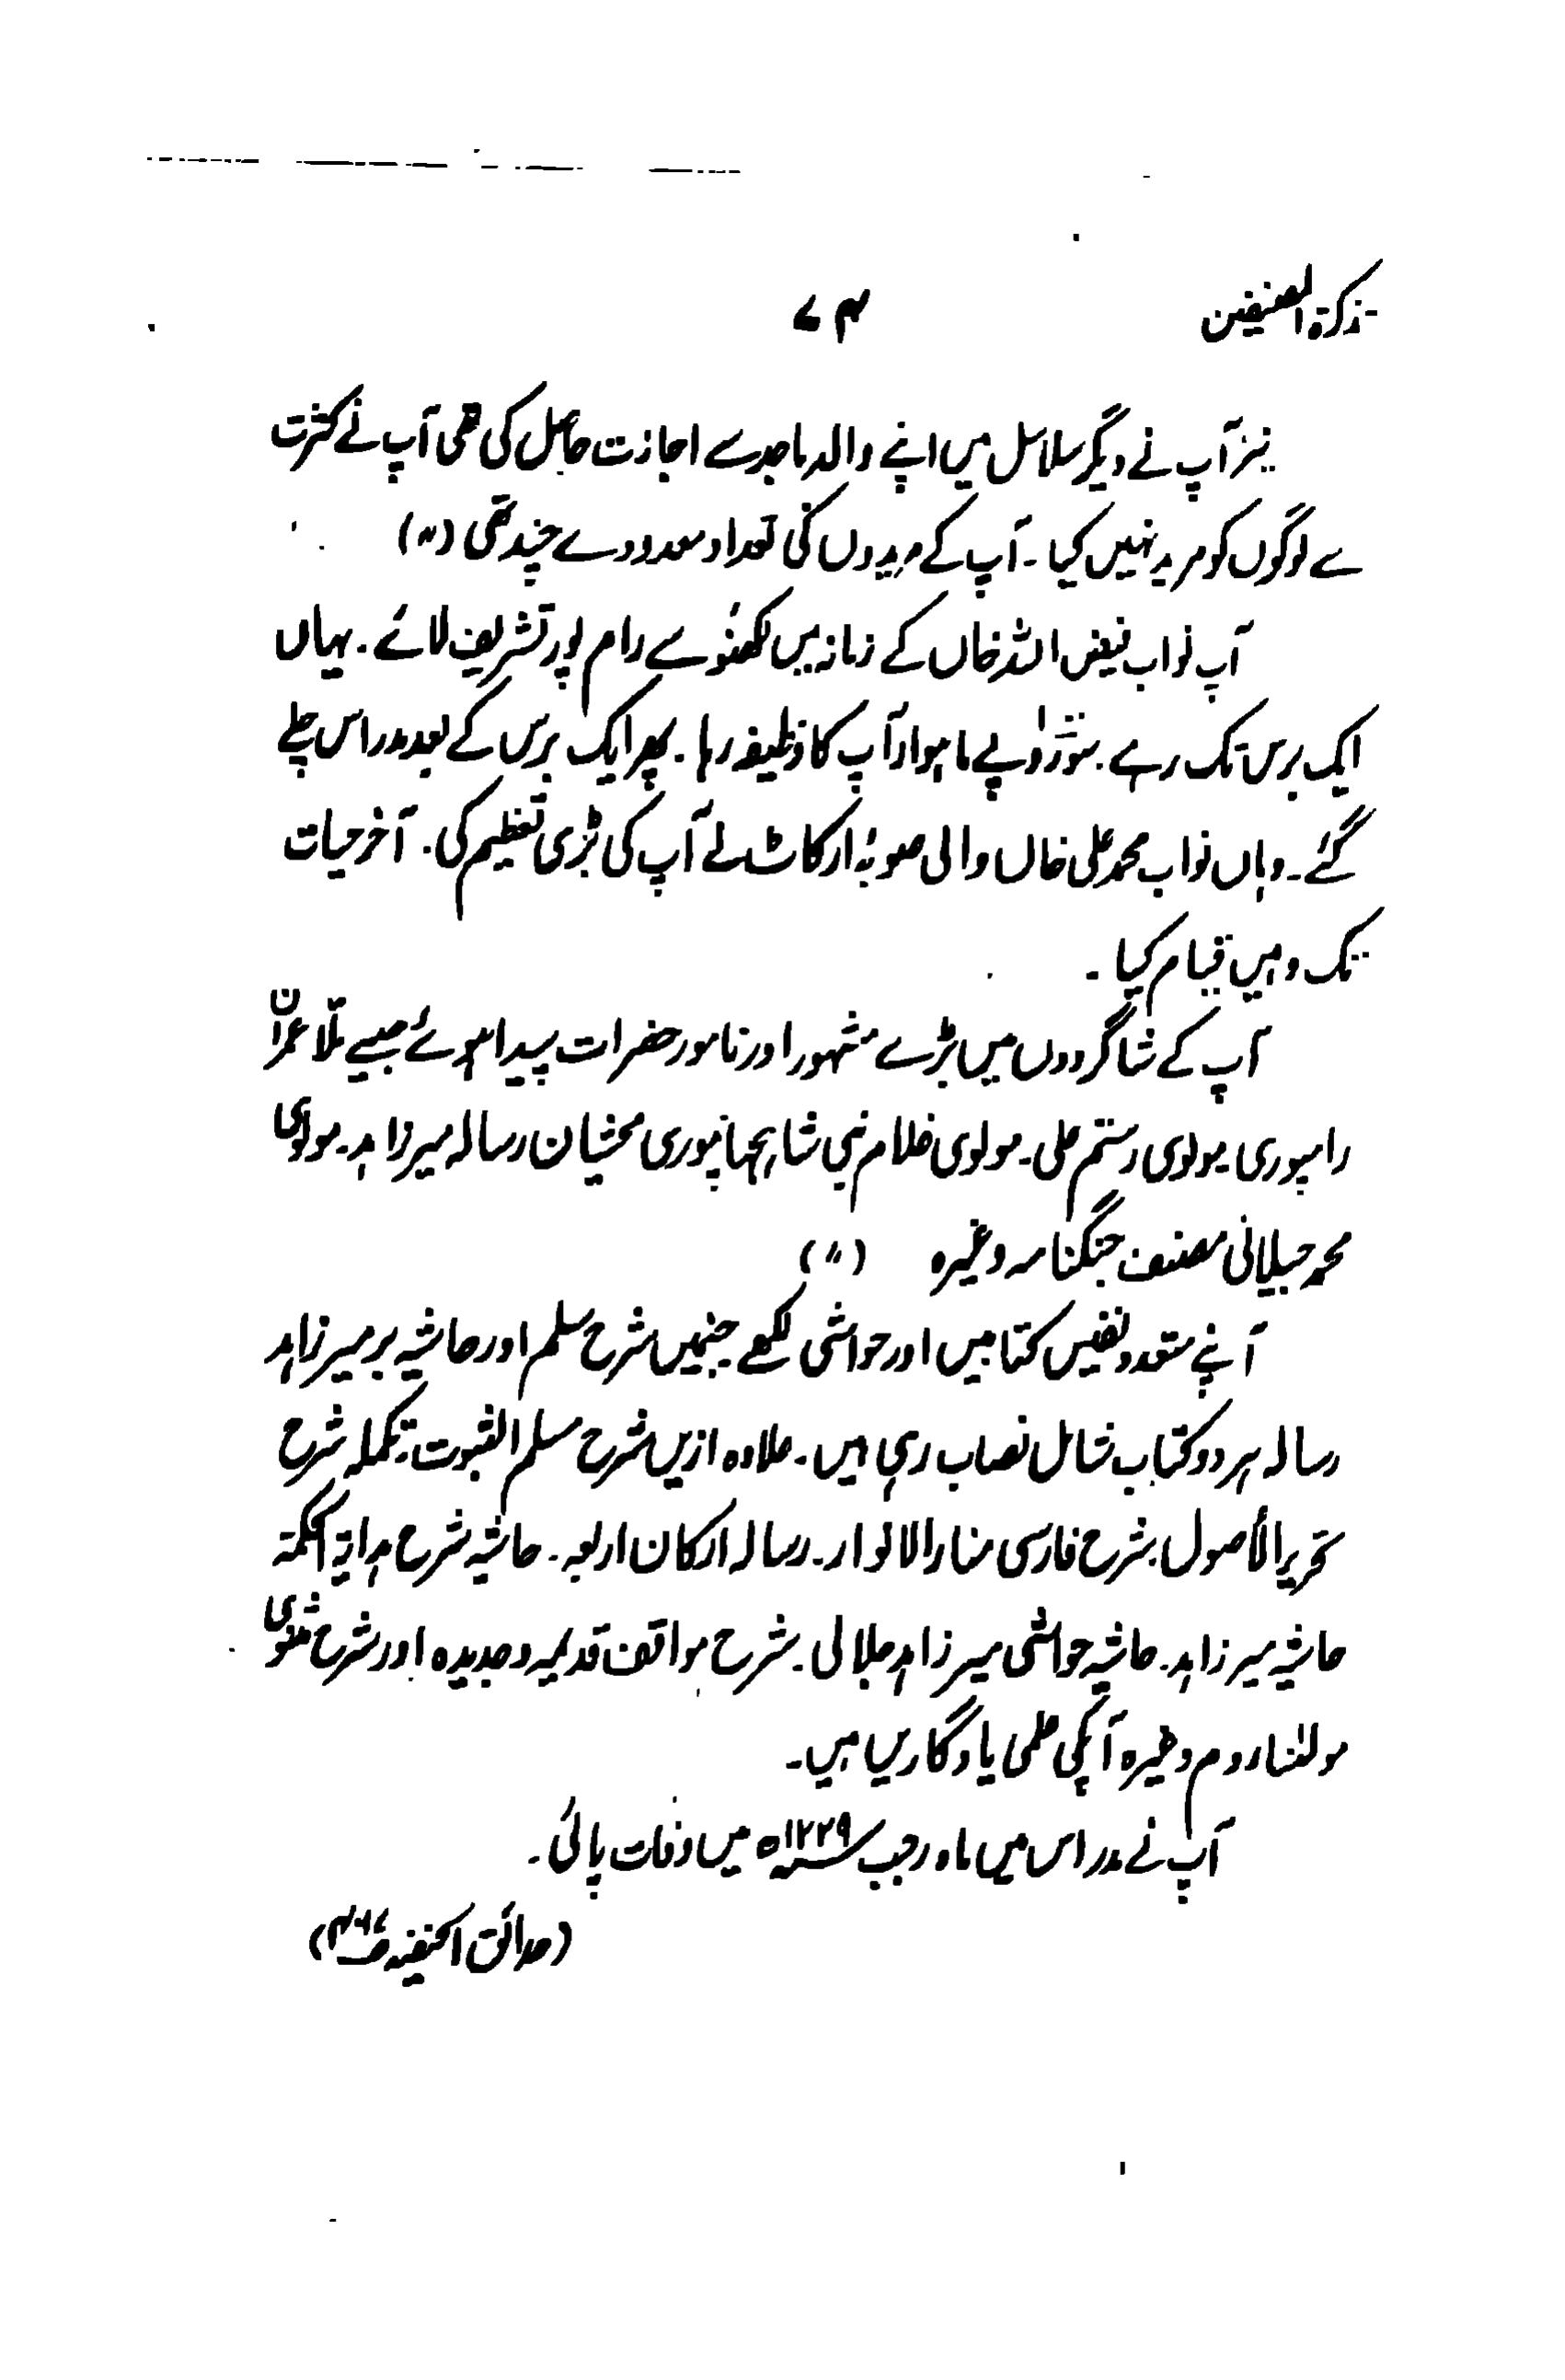 تذکرۃ المصنفین ۴۷
نیز آپ نے دیگر سلاسل میں اپنے والد ماجد سے اجازت حاصل کی تھی آپ نے کثرت
سے لوگوں کو مرید نہیں کیا ۔ آپ کے مریدوں کی تعداد معدودے چند تھی (〃)
آپ نواب فیض اللہ خاں کے زمانہ میں لکھنؤ سے رام پور تشریف لائے ۔ یہاں
ایک برس تک رہے ۔ سَو روپے ماہوار آپ کا وظیفہ رہا ۔ پھر ایک برس کے بعد مدراس چلے
گئے ۔ وہاں نواب محمد علی خاں والی صوبۂ ارکاٹ نے آپ کی بڑی تعظیم کی ۔ آخر حیات
تک وہیں قیام کیا ۔
آپ کے شاگردوں میں بڑے مشہور اور نامور حضرات پیدا ہوئے جیسے ملّا عمران
رامپوری ۔ مولوی رستم علی ۔ مولوی غلام نبی شاہجہانپوری محشیان رسالہ میرزاہد ۔ مولوی
محمد جیلانی مصنف جنگنامہ وغیرہ (〃)
آپنے متعدد نفیس کتابیں اور حواشی لکھے جنمیں شرح سلم اور حاشیہ بر میرزاہد
رسالہ ہر دو کتاب شامل نصاب رہی ہیں ۔ علاوہ ازیں شرح مسلم الثبوت ۔ تکملہ شرح
تحریر الأصول ۔ شرح فارسی منار الانوار ۔ رسالہ ارکان اربعہ ۔ حاشیہ شرح ہدایۃ الحکمۃ
حاشیہ میرزاہد ۔ حاشیہ حواشی میرزاہد جلالی ۔ شرح مواقف قدیمہ وجدیدہ اور شرح مثنوی
مولٰنا روم وغیرہ آپکی علمی یادگاریں ہیں ۔
آپ نے مدراس میں ماہ رجب ۱۲۲۹ھ میں وفات پائی ۔
(حدائق الحنفیہ ص۴۶۷)